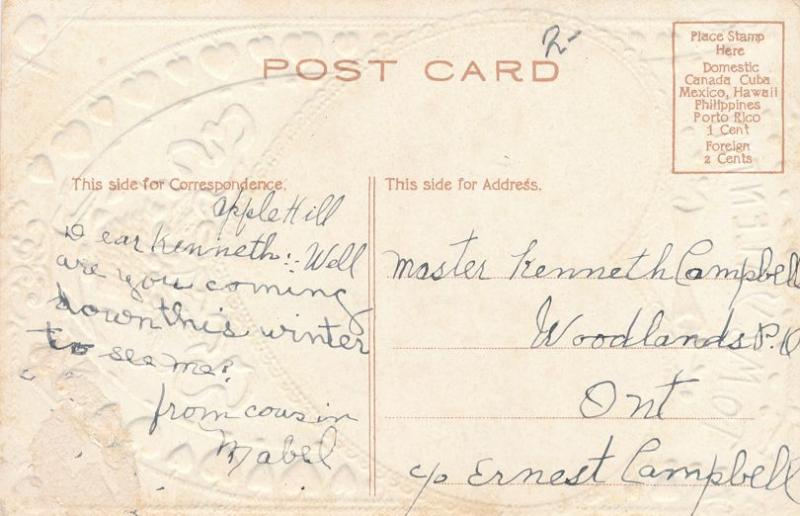 POST CARD
Place Stamp
Here
Domestic
Canada Cuba
Mexico, Hawaii
Philippines
Porto Rico
1 Cent
Foreign
2 Cents
This side for Correspondence.
Apple Hill
Dear Kenneth:- Well
are you coming
down this winter
to see me?
from cousin
Mabel
This side for Address.
Master Kenneth Campbell
Woodlands P.O
Ont
c/o Ernest Campbell